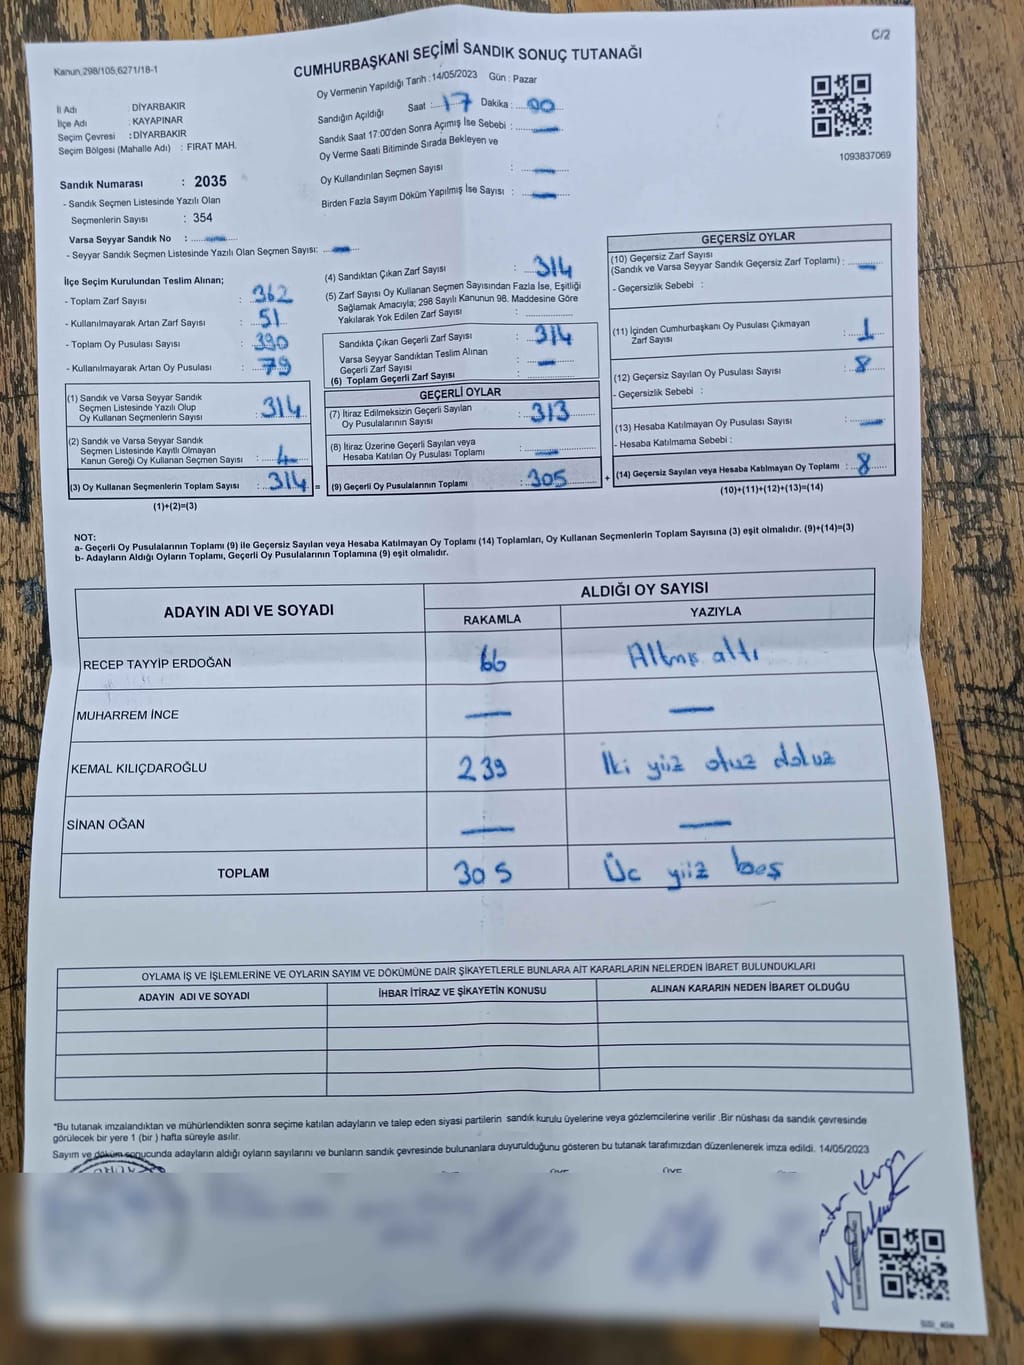 C/2
Kanun,298/105,6271/18-1
CUMHURBAŞKANI SEÇİMİ SANDIK SONUÇ TUTANAĞI
Oy Vermenin Yapıldığı Tarih : 14/05/2023 Gün : Pazar
İl Adı : DİYARBAKIR
İlçe Adı : KAYAPINAR
Seçim Çevresi : DİYARBAKIR
Seçim Bölgesi (Mahalle Adı) : FIRAT MAH.
Sandığın Açıldığı Saat : 17 Dakika : 00
Sandık Saat 17:00'den Sonra Açımış İse Sebebi : —
Oy Verme Saati Bitiminde Sırada Bekleyen ve
Oy Kullandırılan Seçmen Sayısı : —
Birden Fazla Sayım Döküm Yapılmış İse Sayısı : —
1093837069
Sandık Numarası : 2035
- Sandık Seçmen Listesinde Yazılı Olan
Seçmenlerin Sayısı : 354
Varsa Seyyar Sandık No : —
- Seyyar Sandık Seçmen Listesinde Yazılı Olan Seçmen Sayısı: —
İlçe Seçim Kurulundan Teslim Alınan;
- Toplam Zarf Sayısı : 362
- Kullanılmayarak Artan Zarf Sayısı : 51
- Toplam Oy Pusulası Sayısı : 390
- Kullanılmayarak Artan Oy Pusulası : 79
(1) Sandık ve Varsa Seyyar Sandık
Seçmen Listesinde Yazılı Olup
Oy Kullanan Seçmenlerin Sayısı : 314
(2) Sandık ve Varsa Seyyar Sandık
Seçmen Listesinde Kayıtlı Olmayan
Kanun Gereği Oy Kullanan Seçmen Sayısı :
(3) Oy Kullanan Seçmenlerin Toplam Sayısı : 314 =
(1)+(2)=(3)
(4) Sandıktan Çıkan Zarf Sayısı : 314
(5) Zarf Sayısı Oy Kullanan Seçmen Sayısından Fazla İse, Eşitliği
Sağlamak Amacıyla; 298 Sayılı Kanunun 98. Maddesine Göre
Yakılarak Yok Edilen Zarf Sayısı :
Sandıkta Çıkan Geçerli Zarf Sayısı : 314
Varsa Seyyar Sandıktan Teslim Alınan
Geçerli Zarf Sayısı : —
(6) Toplam Geçerli Zarf Sayısı :
GEÇERLİ OYLAR
(7) İtiraz Edilmeksizin Geçerli Sayılan
Oy Pusulasının Sayısı : 313
(8) İtiraz Üzerine Geçerli Sayılan veya
Hesaba Katılan Oy Pusulası Toplamı : —
(9) Geçerli Oy Pusulalarının Toplamı : 305 +
GEÇERSİZ OYLAR
(10) Geçersiz Zarf Sayısı
(Sandık ve Varsa Seyyar Sandık Geçersiz Zarf Toplamı) : —
- Geçersizlik Sebebi :
(11) İçinden Cumhurbaşkanı Oy Pusulası Çıkmayan
Zarf Sayısı : 1
(12) Geçersiz Sayılan Oy Pusulası Sayısı : 8
- Geçersizlik Sebebi :
(13) Hesaba Katılmayan Oy Pusulası Sayısı : —
- Hesaba Katılmama Sebebi :
(14) Geçersiz Sayılan veya Hesaba Katılmayan Oy Toplamı : 8
(10)+(11)+(12)+(13)=(14)
NOT:
a- Geçerli Oy Pusulalarının Toplamı (9) ile Geçersiz Sayılan veya Hesaba Katılmayan Oy Toplamı (14) Toplamları, Oy Kullanan Seçmenlerin Toplam Sayısına (3) eşit olmalıdır. (9)+(14)=(3)
b- Adayların Aldığı Oyların Toplamı, Geçerli Oy Pusulalarının Toplamına (9) eşit olmalıdır.
ADAYIN ADI VE SOYADI ALDIĞI OY SAYISI
RAKAMLA YAZIYLA
RECEP TAYYİP ERDOĞAN 66 Altmış altı
MUHARREM İNCE — —
KEMAL KILIÇDAROĞLU 239 İki yüz otuz dokuz
SİNAN OĞAN — —
TOPLAM 305 Üç yüz beş
OYLAMA İŞ VE İŞLEMLERİNE VE OYLARIN SAYIM VE DÖKÜMÜNE DAİR ŞİKAYETLERLE BUNLARA AİT KARARLARIN NELERDEN İBARET BULUNDUKLARI
ADAYIN ADI VE SOYADI İHBAR İTİRAZ VE ŞİKAYETİN KONUSU ALINAN KARARIN NEDEN İBARET OLDUĞU
*Bu tutanak imzalandıktan ve mühürlendikten sonra seçime katılan adayların ve talep eden siyasi partilerin sandık kurulu üyelerine veya gözlemcilerine verilir .Bir nüshası da sandık çevresinde
görülecek bir yere 1 (bir ) hafta süreyle asılır.
Sayım ve döküm sonucunda adayların aldığı oyların sayılarını ve bunların sandık çevresinde bulunanlara duyurulduğunu gösteren bu tutanak tarafımızdan düzenlenerek imza edildi. 14/05/2023
ÜYE ÜYE